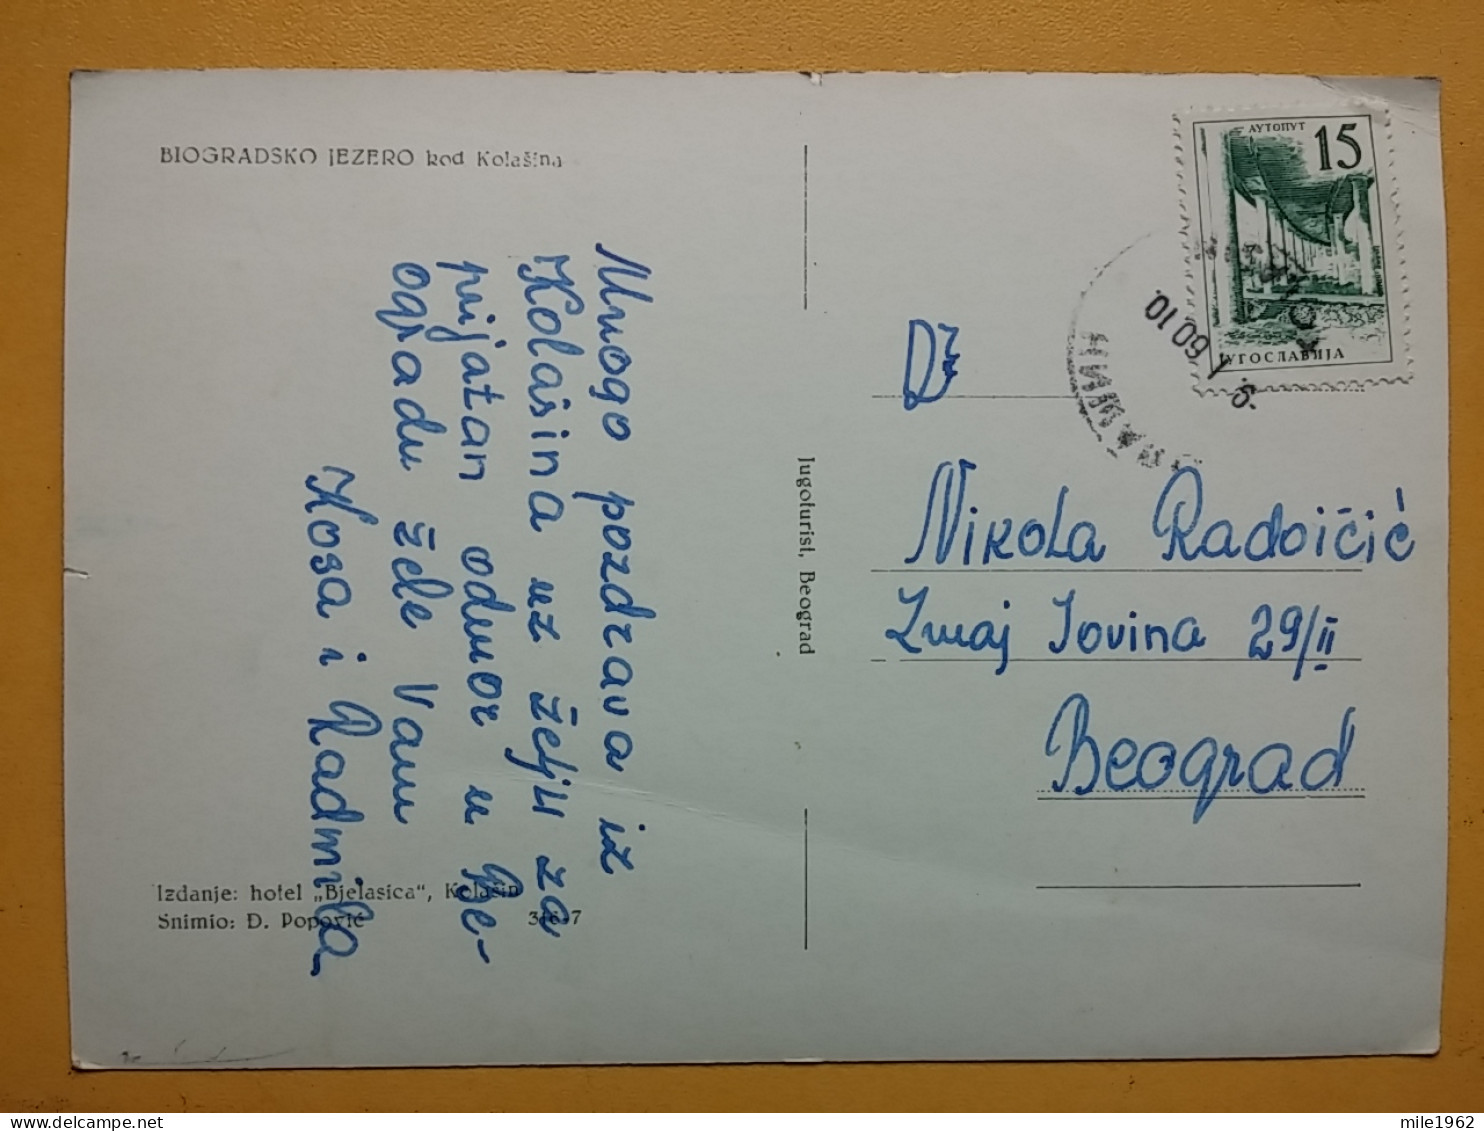 BIOGRADSKO JEZERO kod Kolašina
Mnogo pozdrava iz
Kolašina uz želju za
prijatan odmor u Be-
ogradu žele Vam
Kosa i Radmila
Izdanje: hotel „Bjelasica“, Kolašin
Snimio: Đ. Popović 316-7
Jugoturist, Beograd
АУТОПУТ
15
ЈУГОСЛАВИЈА
60 10
Nikola Radoičić
Zmaj Jovina 29/II
Beograd
mile1962